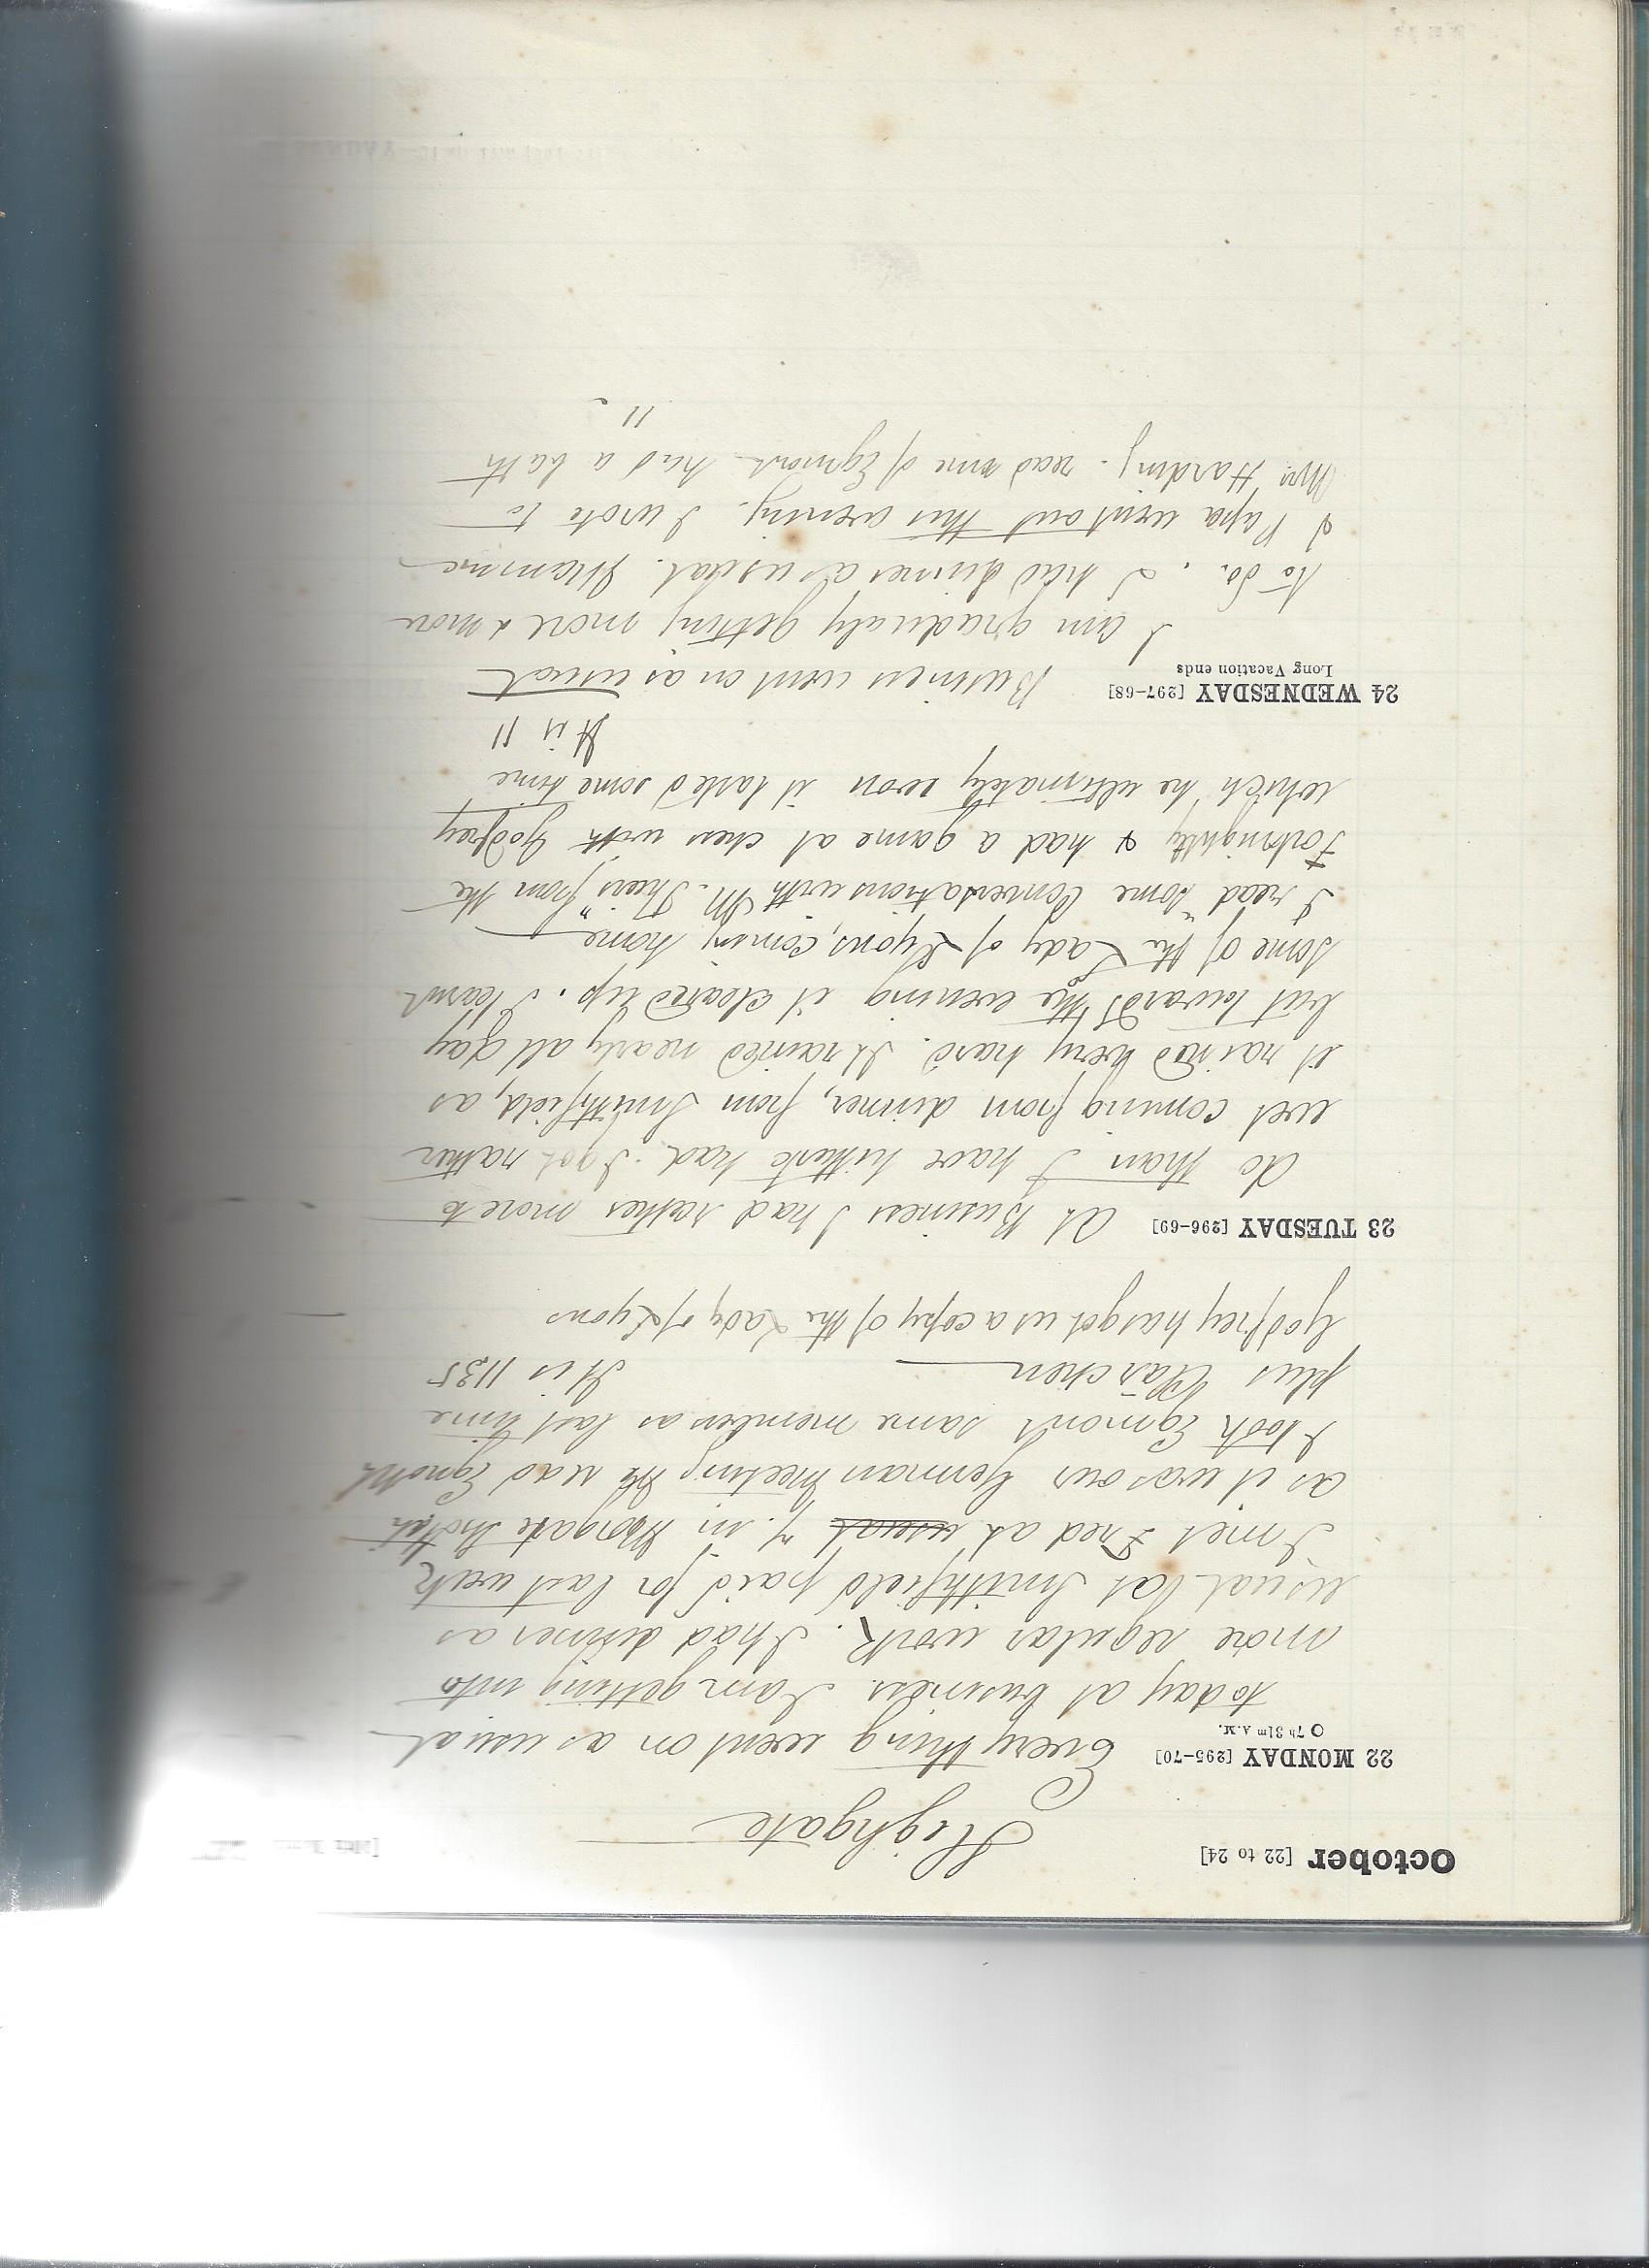 October [22 to 24]
Highgate
22 MONDAY [295-70]
○ 7h 31m A.M.
Everything went on as usual
today at business. I am getting into
more regular work. I had dinner as
usual (at Smithfield paid for last week
I met Fred at usual 7. in Moorgate
as it was our German Meeting We read Egmont
I took Egmont same members as last time
plus Clärchen It is 1135
Godfrey has got us a copy of the Lady of Lyons
23 TUESDAY [296-69]
At Business I had rather more to
do than I have hitherto had. I got rather
wet coming from dinner, from Smithfield, as
it rained very hard. It rained nearly all day
but towards the evening it cleared up. I learnt
some of the Lady of Lyons, coming home
I read "some Conversations with M. Thiers" from the
Fortnightly & had a game at chess with Godfrey
which he ultimately won it lasted some time
It is 11
24 WEDNESDAY [297-68]
Long Vacation ends
Business went on as usual
I am gradualy getting more & more
to do. I had dinner as usual. Mamma
& Papa went out this evening. I wrote to
Mrs Harding. read some of Egmont had a bath
11